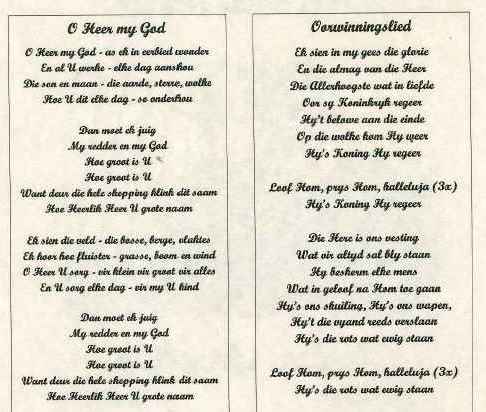 O Heer my God
O Heer my God - as ek in eerbied wonder
En al U werke - elke dag aanskou
Die son en maan - die aarde, sterre, wolke
Hoe U dit elke dag - so onderhou
Dan moet ek juig
My redder en my God
Hoe groot is U
Hoe groot is U
Want deur die hele skepping klink dit saam
Hoe Heerlik Heer U grote naam
Ek sien die veld - die bosse, berge, vlaktes
Ek hoor hoe fluister - grasse, boom en wind
O Heer U sorg - vir klein vir groot vir alles
En U sorg elke dag - vir my U kind
Dan moet ek juig
My redder en my God
Hoe groot is U
Hoe groot is U
Want deur die hele skepping klink dit saam
Hoe Heerlik Heer U grote naam
Oorwinningslied
Ek sien in my gees die glorie
En die almag van die Heer
Die Allerhoogste wat in liefde
Oor sy Koninkryk regeer
Hy't belowe aan die einde
Op die wolke kom Hy weer
Hy's Koning Hy regeer
Loof Hom, prys Hom, halleluja (3x)
Hy's Koning Hy regeer
Die Here is ons vesting
Wat vir altyd sal bly staan
Hy beskerm elke mens
Wat in geloof na Hom toe gaan
Hy's ons skuiling, Hy's ons wapen,
Hy't die vyand reeds verslaan
Hy's die rots wat ewig staan
Loof Hom, prys Hom, halleluja (3x)
Hy's die rots wat ewig staan